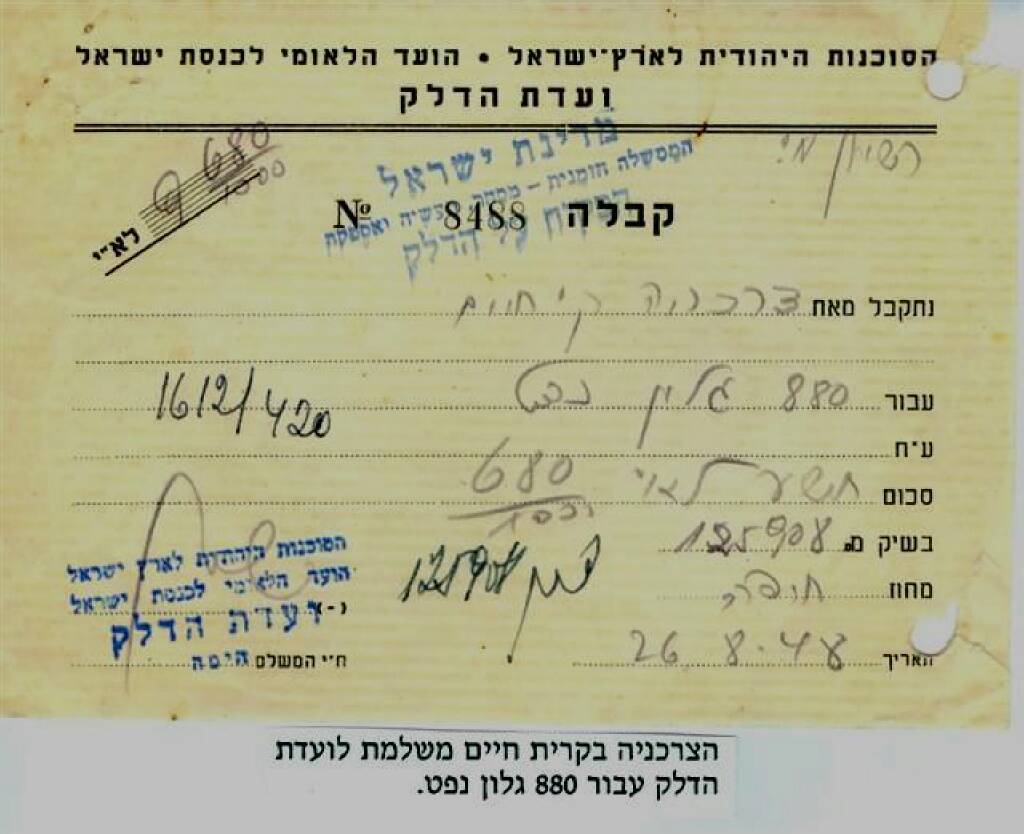 הסוכנות היהודית לארץ־ישראל • הועד הלאומי לכנסת ישראל
ועדת הדלק
רשיון מי.
9 680/1000 לא״י
מדינת ישראל
הממשלה הזמנית –
המפקח על הדלק
קבלה 8488 №
נתקבל מאת צרכניה ק׳ חיים
עבור 880 גלון נפט
1612/420
ע״ח
סכום תשע לא״י 680
בשיק מ. 125908
125908
מחוז חיפה
הסוכנות היהודית לארץ ישראל
הועד הלאומי לכנסת ישראל
ועדת הדלק
חיפה
תאריך 26.8.48
ח״י המשלם
הצרכניה בקרית חיים משלמת לועדת
הדלק עבור 880 גלון נפט.